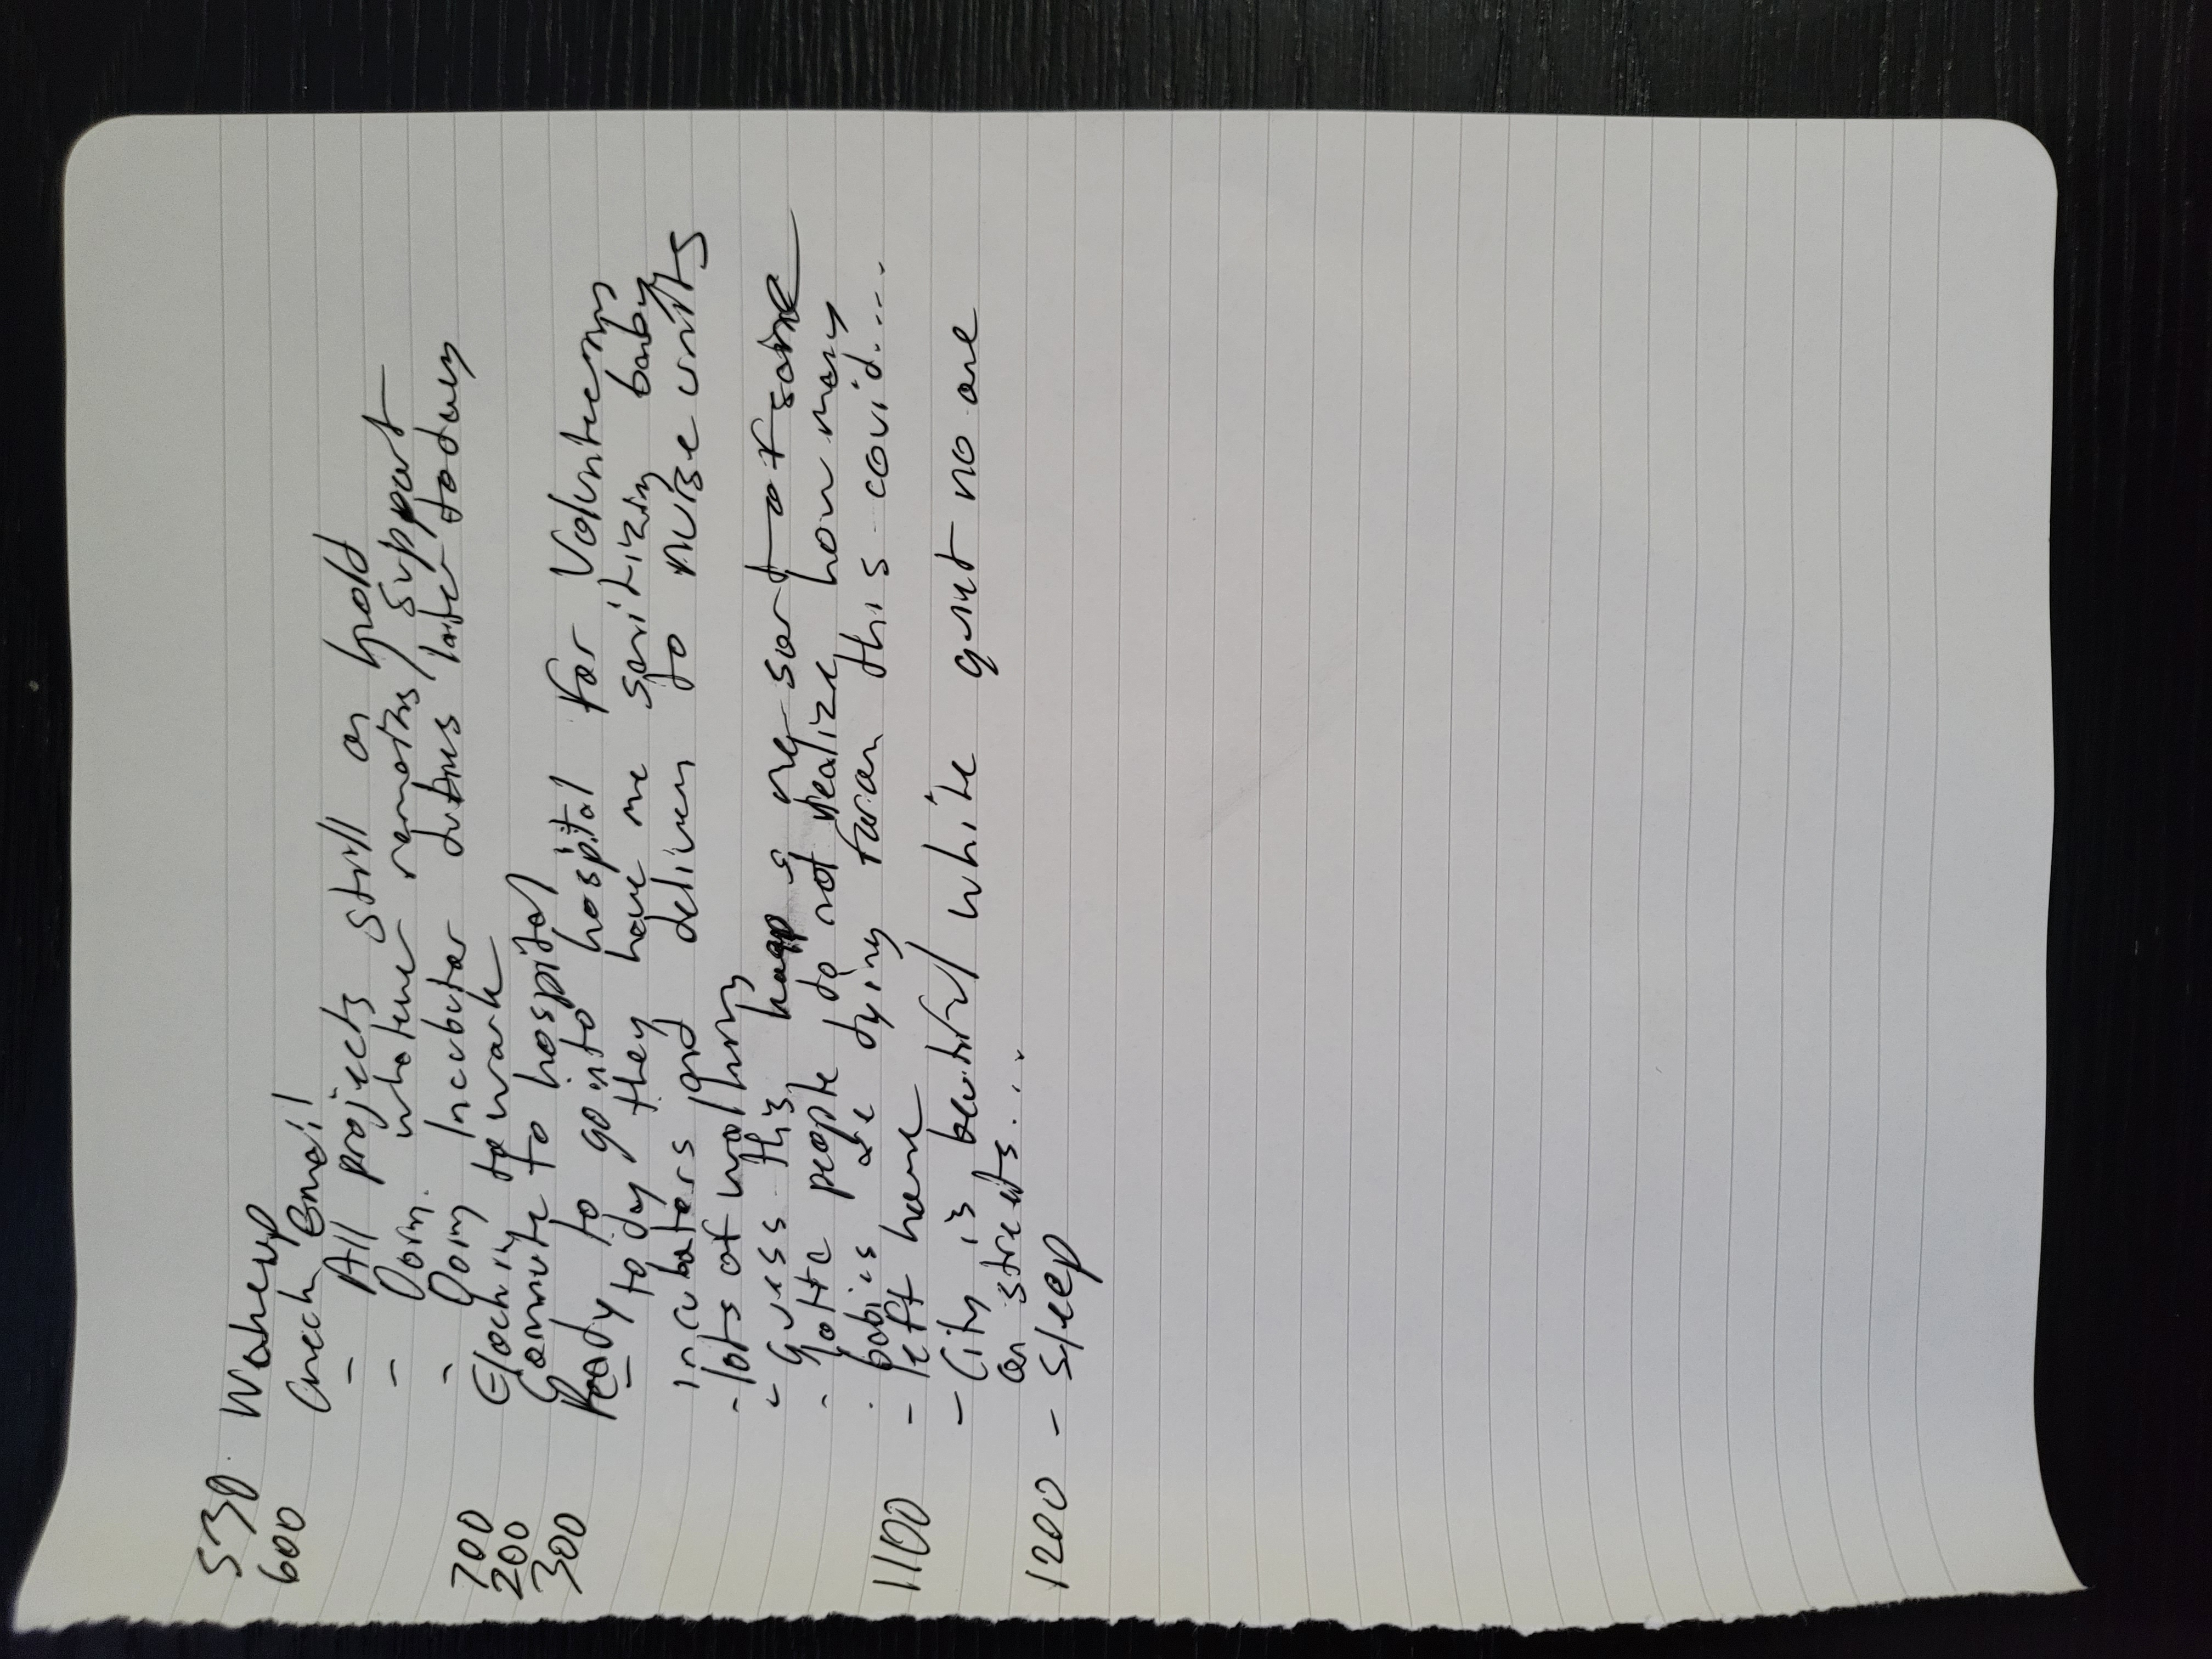 530 Wakeup
600 Check Email
- All projects still on hold
- Doing whatever remains / support
- Doing Incubator duties later today
700 Clock in to work
200 Commute to hospital
300 Ready to go into hospital for Volunteering
- today they have me sanitizing baby
incubators and delivery to nurse units
- lots of walking
- guess this keeps me sort of sane
- lotta people do not realize how many
- babies are dying from this covid....
1100 - left home
- City is beautiful white quiet no one
on streets...
1200 - sleep